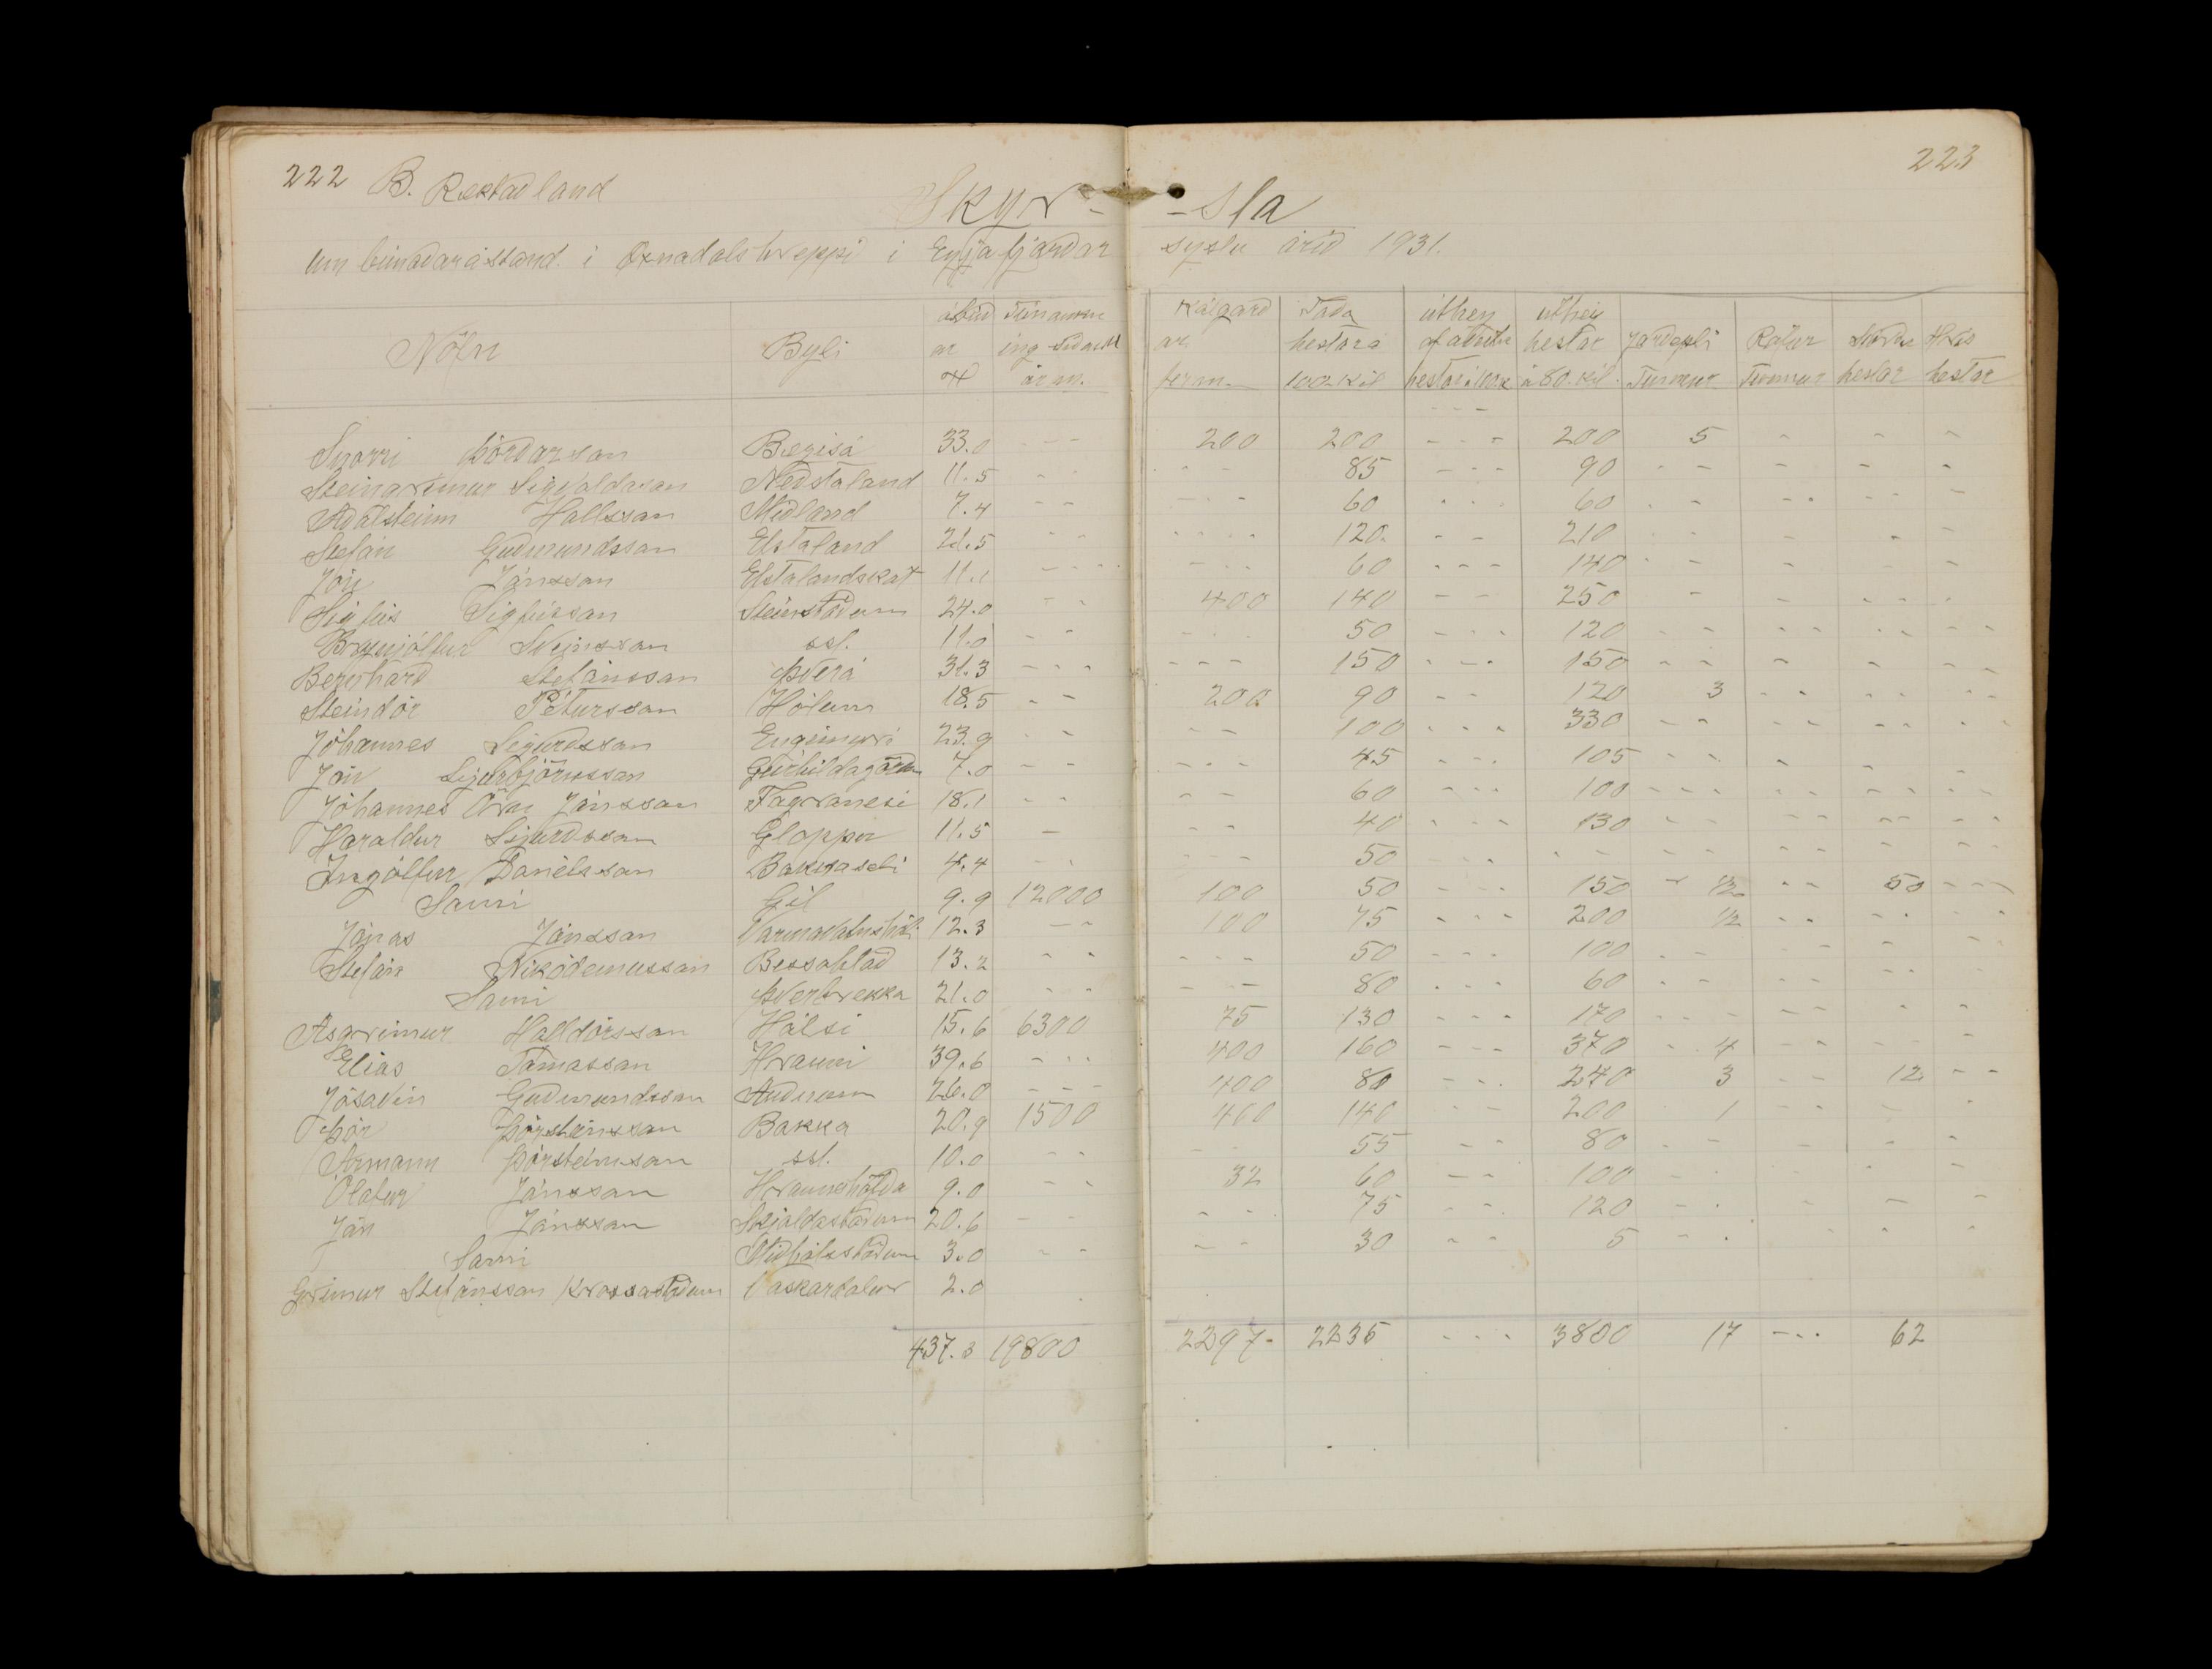 222 B. Ræktað land
Skyr- -sla 223
um búnaðarástand í Öxnadalshreppi í Eyjafjarðar sýslu árið 1931.
Nöfn Býli ábúð ar # Túnaukn ing Síðasta ár m. Kálgarð ar ferm. Taða hestar á 100 kil úthey hestar á 100 k úthey hestar á 80. kil. Jarðepli Tunnur Rófur Tunnur hestar Hrís hestar
Snorri Þórðarsson Bægisá 33.0 - - - 200 200 - - - 200 5 - - -
Steingrímur Sigvaldason Neðstaland 11.5 - - - - - 85 - - - 90 - - - - -
Aðalsteinn Hallsson Miðland 7.4 - - - - - 60 - - - 60 - - - - - - -
Stefán Guðmundsson Efstaland 21.5 - - - - - - 120. - - 210 - - - - -
Jón Jónsson Efstalandskot 11.1 - - - - - - - 60 - - - 140 - - - - -
Sigfús Sigfússon Steinstöðum 24.0 - - 400 140 - - 250 - - - - - -
Brynjólfur Sveinsson ssl. 11.0 - - - - - 50 - - - 120 - - - - - - - -
Bernharð Stefánsson Þverá 31.3 - - - - - - 150 - - - 150 - - - - - - -
Steindór Pétursson Hólum 18.5 - - 200 90 - - 120 3 - - - - - -
Jóhannes Sigurðsson Engimýri 23.9 - - - - 100 - - - 330 - - - - - - - -
Jón Sigurbjörnsson Geirhildagörðum 7.0 - - - - - 45 - - - 105 - - - - -
Jóhannes Örn Jónsson Fagranesi 18.1 - - - - 60 - - - 100 - - - - - - - - -
Haraldur Sigurðsson Gloppu 11.5 - - - 40 - - - 130 - - - - - - - -
Ingólfur Daníelsson Bakkaseli 4.4 - - - - - 50 - - - - - - - - - - - - -
Sami Gil 9.9 12000 100 50 - - - 150 - 1/2 - - 50 - - -
Jónas Jónsson Varmavatnshól. 12.3 - - 100 75 - - - 200 1/2 - - - - - -
Stefán Nikódemusson Bessahlað 13.2 - - - - - 50 - - - 100 - - - - - - -
Sami Þverbrekka 21.0 - - - - 80 - - - 60 - - - - - - - -
Ásgrímur Halldórsson Hálsi 15.6 6300 75 130 - - - 170 - - - - - - -
Elías Tómasson Hrauni 39.6 - - - 400 160 - - - 370 - 4 - - - - -
Jósavin Guðmundsson Auðnum 26.0 - - - 400 80 - - - 240 3 - - 12 - -
Þór Þorsteinsson Bakka 20.9 1500 400 140 - - 200 1 - - - -
Ármann Þorsteinsson ssl. 10.0 - - - - 55 - - 80 - - - - -
Ólafur Jónsson Hraunshöfða 9.0 - - 32 60 - - 100 - - - -
Jón Jónsson Skjaldastöðum 20.6 - - - - 75 - - 120 - - - - -
Sami Miðhálsstöðum 3.0 - - - - 30 - - 5 - - - - -
Grímur Stefánsson Krossastöðum Vaskárdalur 2.0
437.3 19800 2297- 2235 - - - 3800 17 - - - 62